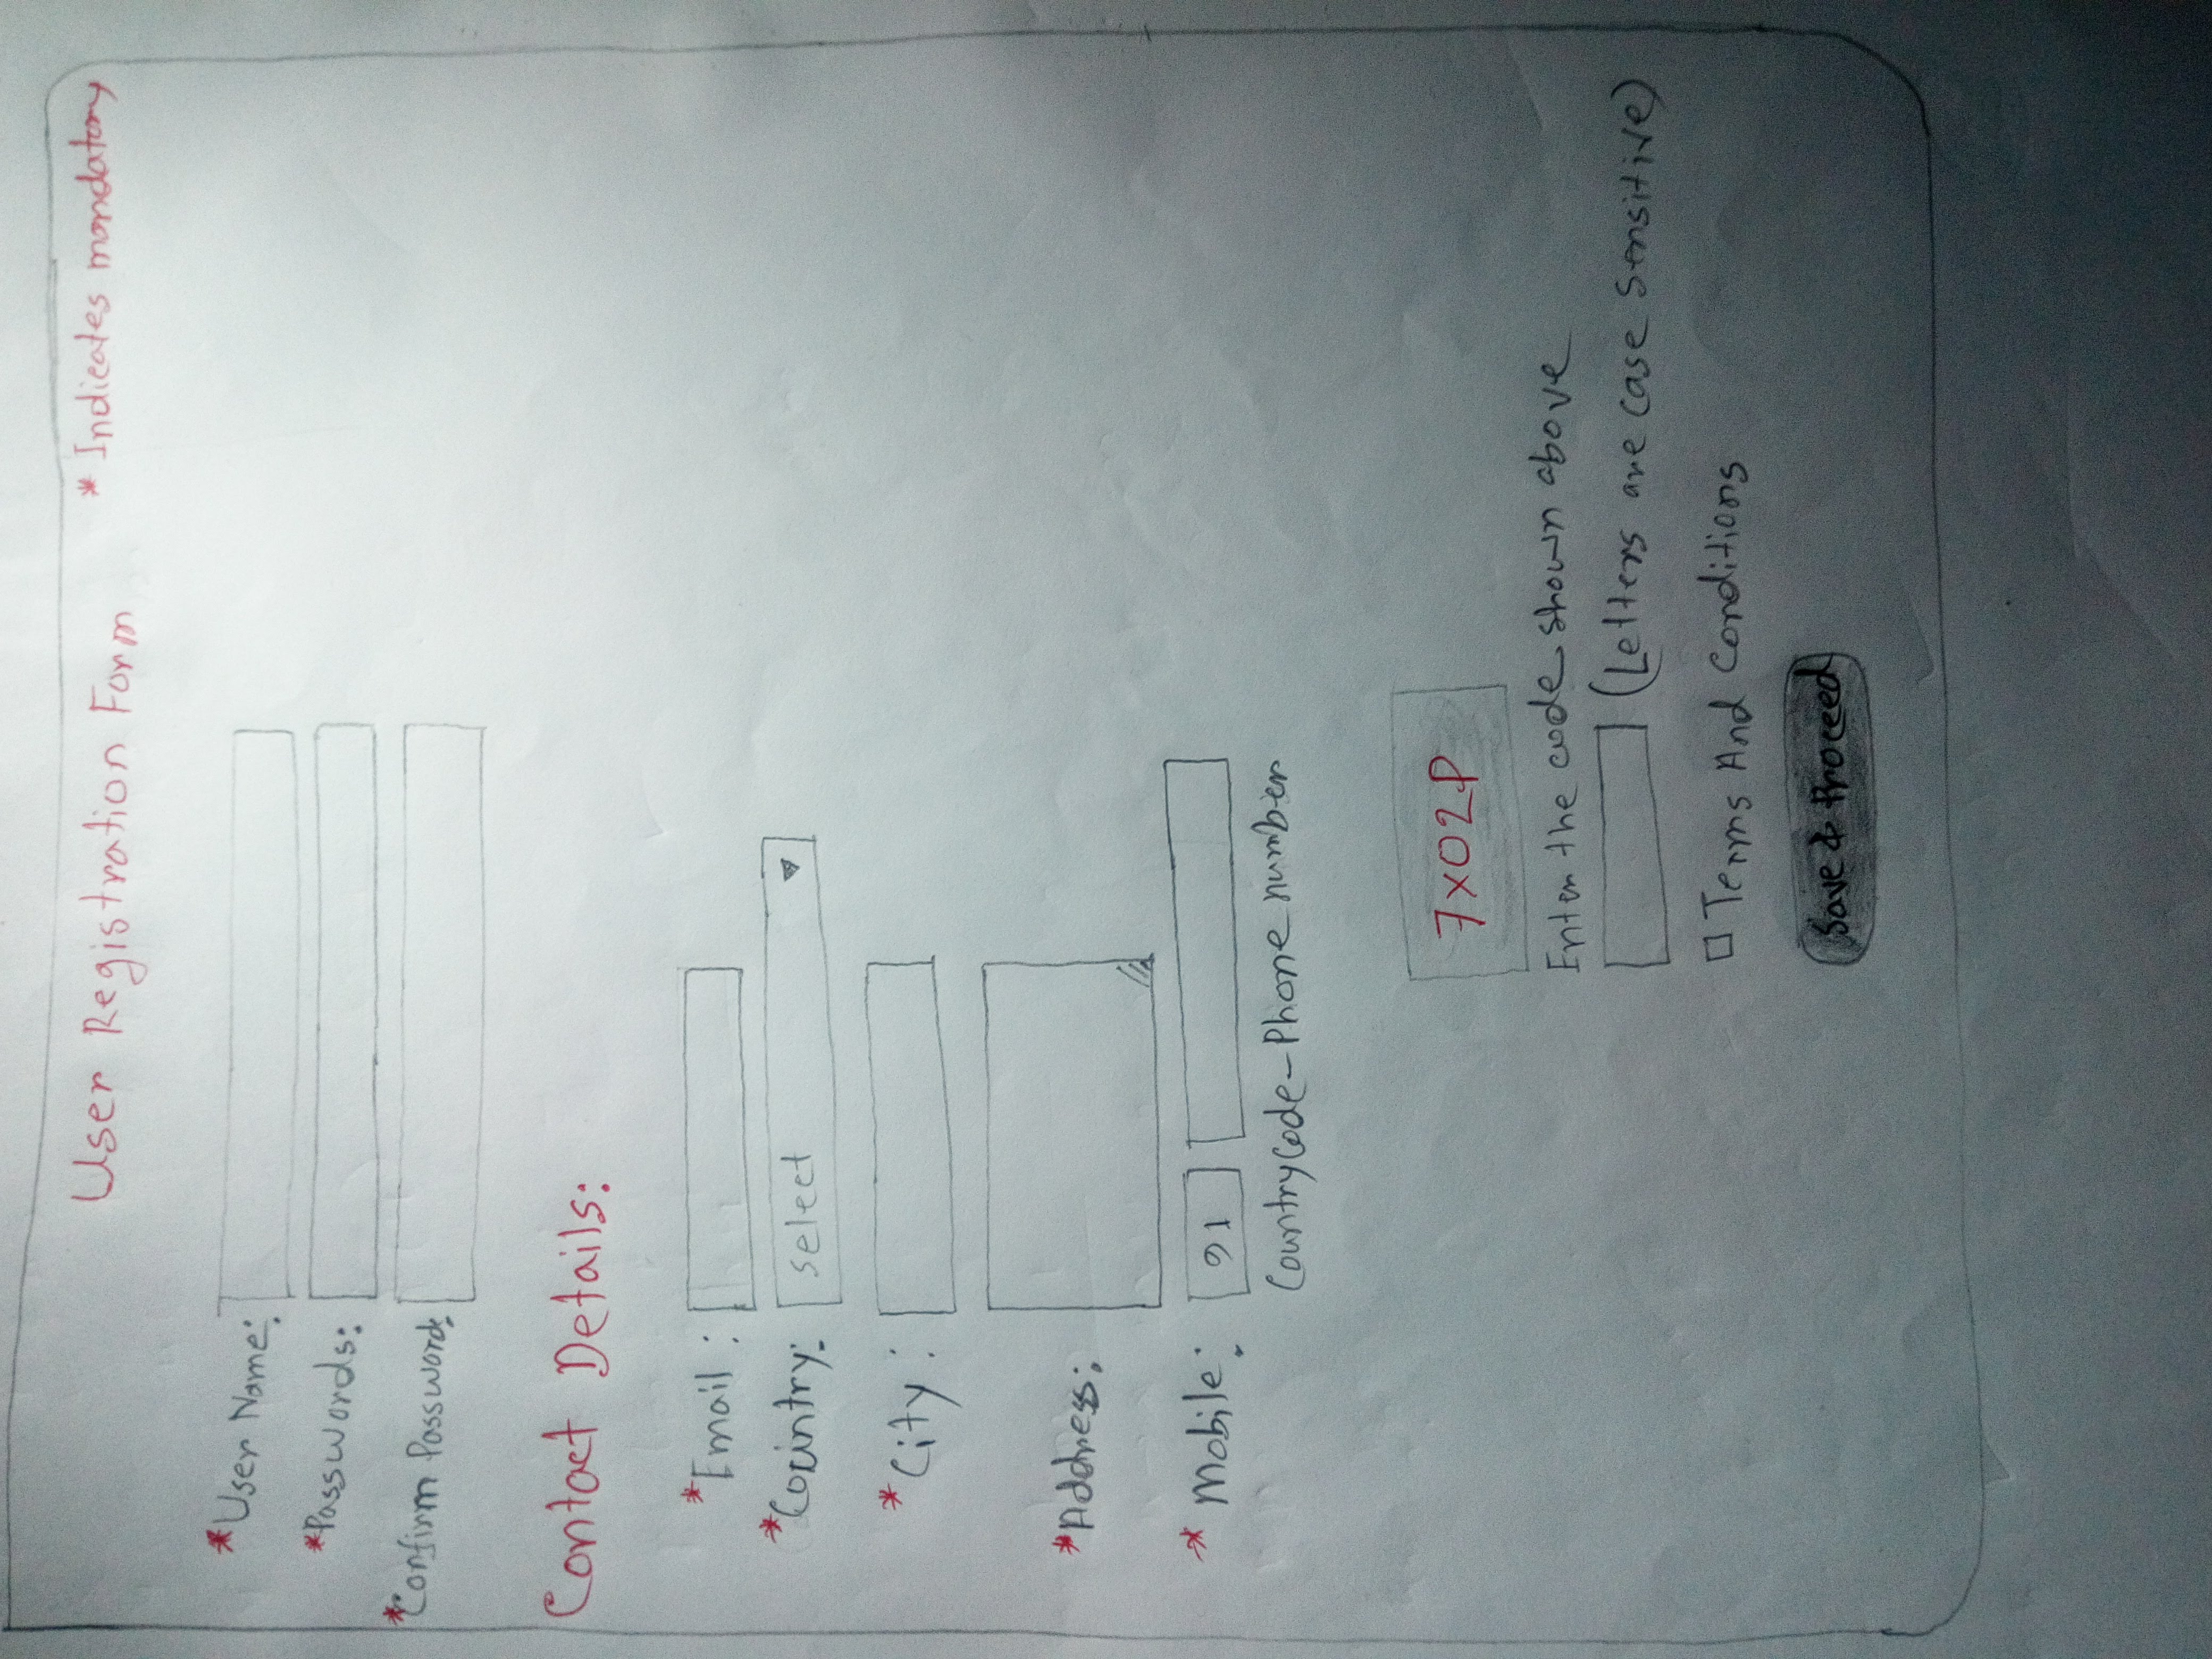 User Registration Form * Indicates mandatory
*User Name:
*Passwords:
*Confirm Password:
Contact Details:
*Email :
*Country: select
*City :
*Address:
* Mobile: 91
Countrycode-Phone number
7x02P
Enter the code shown above
(Letters are case sensitive)
Terms And Conditions
Save & Proceed